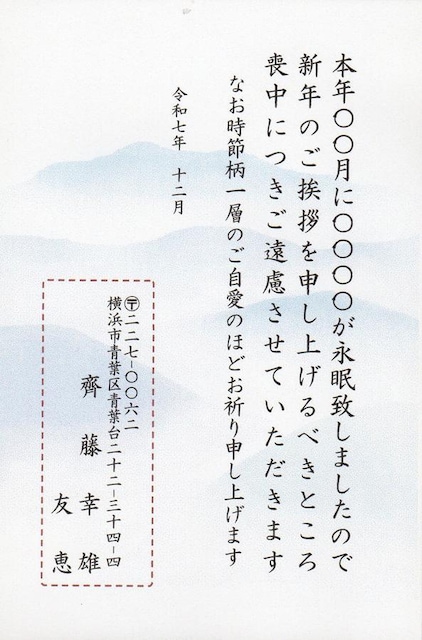 本年〇〇月に〇〇〇〇が永眠致しましたので
新年のご挨拶を申し上げるべきところ
喪中につきご遠慮させていただきます
なお時節柄一層のご自愛のほどお祈り申し上げます
令和七年　十二月
〒二二七-〇〇六二
横浜市青葉区青葉台二十二-三十四-四
齊藤幸雄
友恵